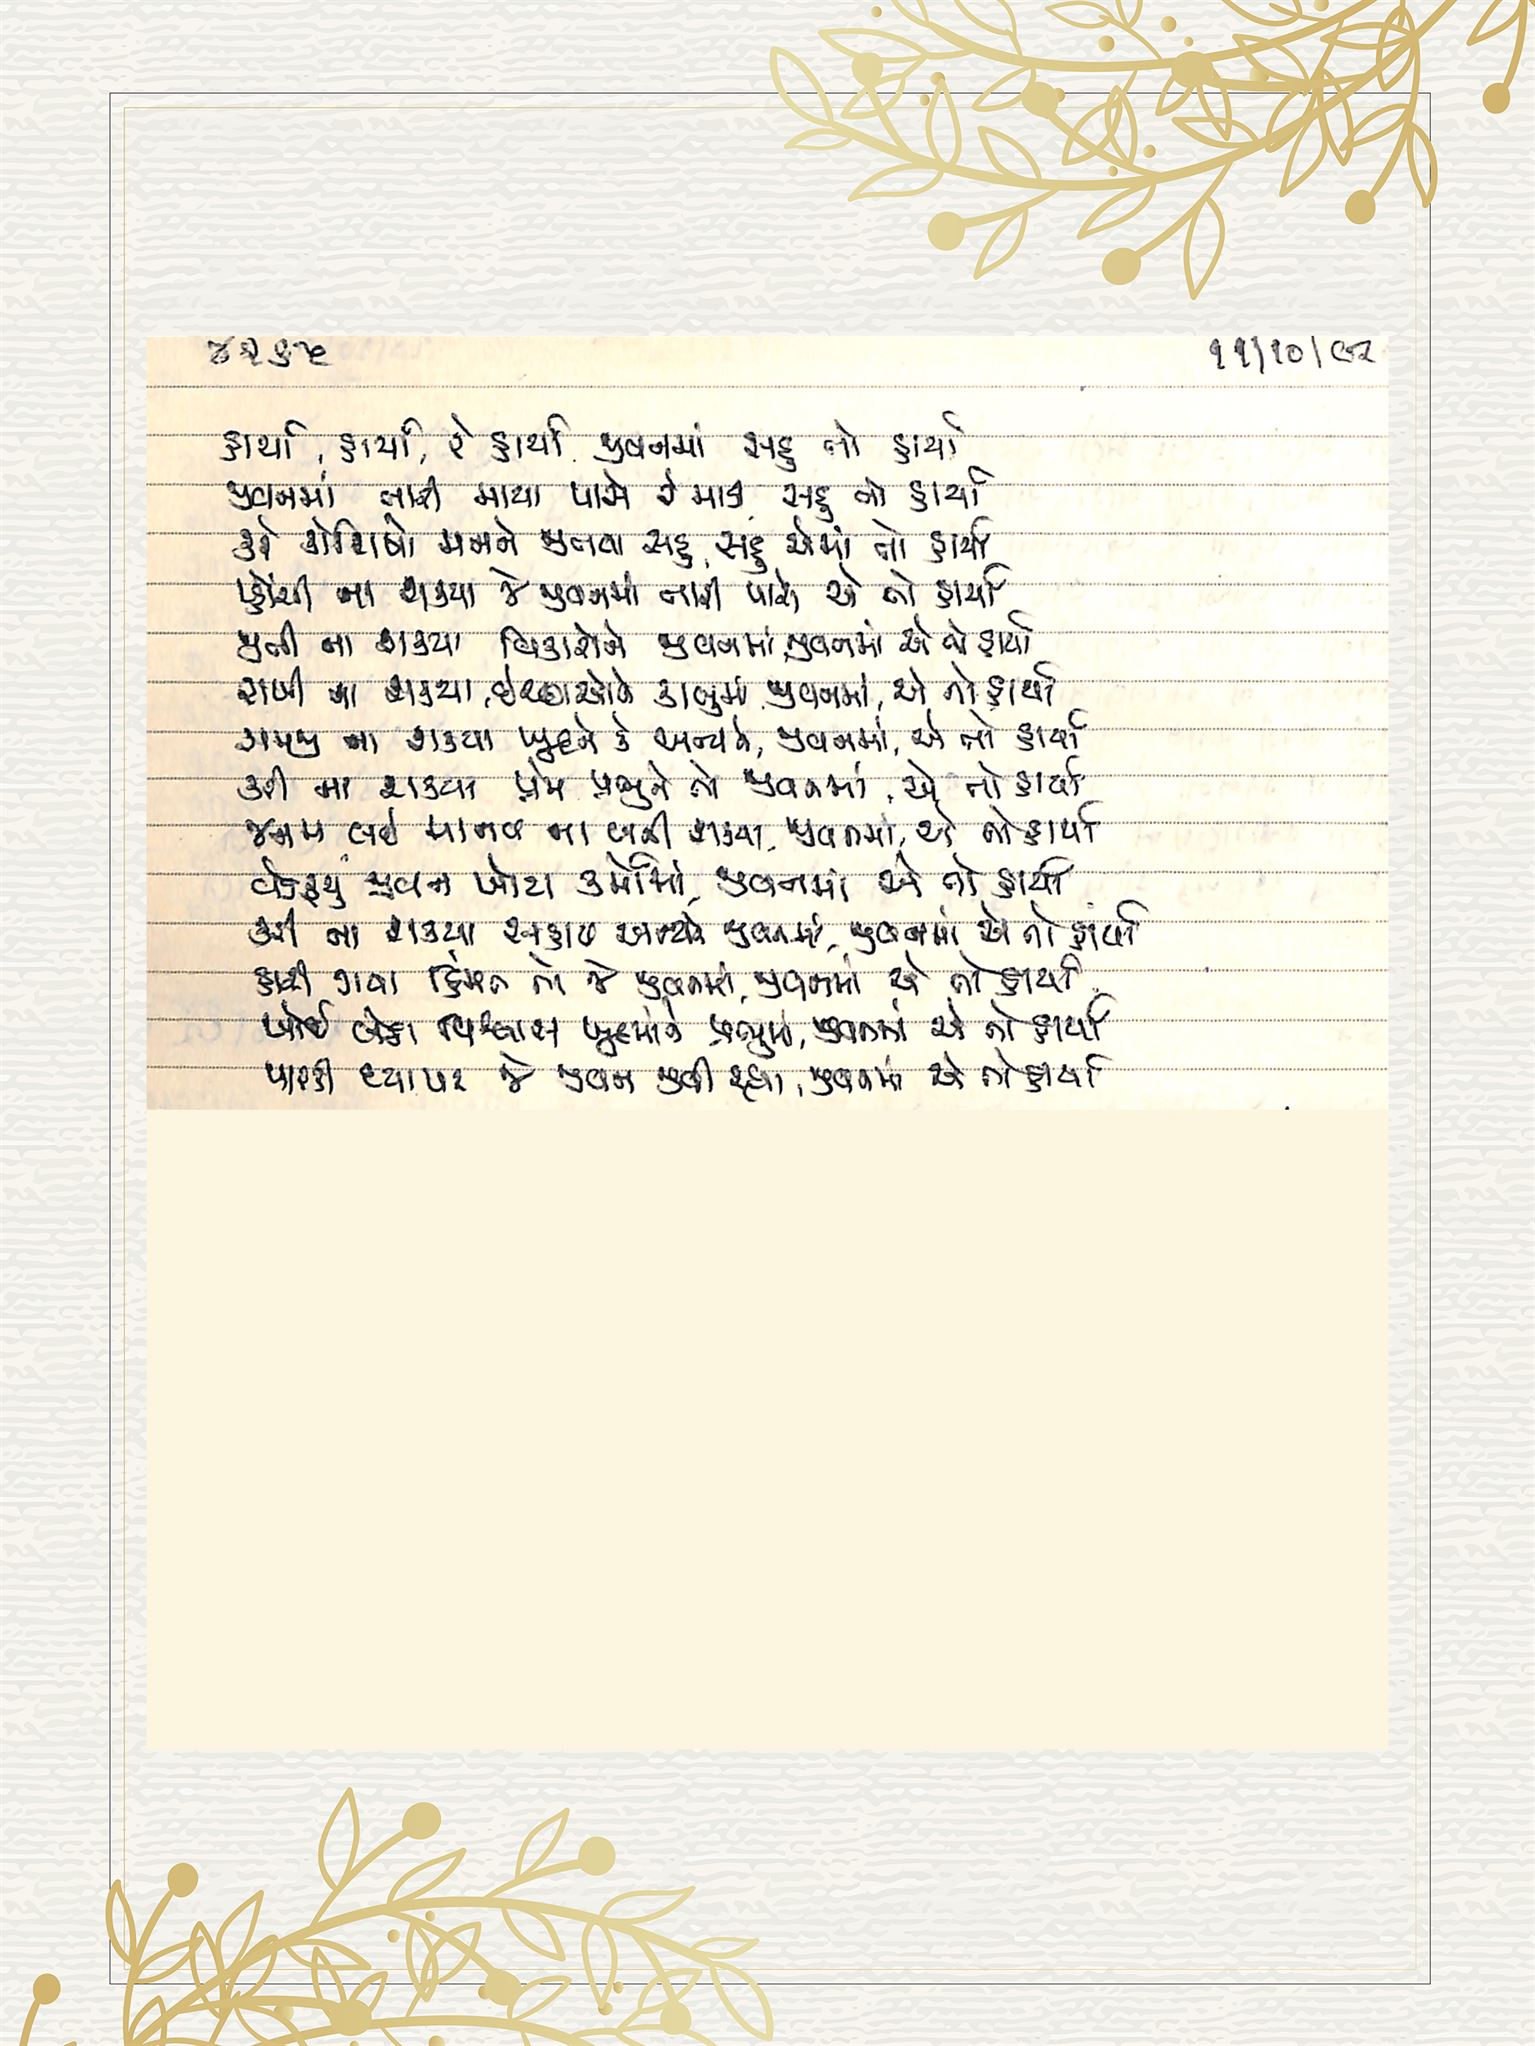 ૪૨૬૫ ૧૧/૧૦/૯૨
હાર્યા, હાર્યા, રે હાર્યા જીવનમાં સહુ તો હાર્યા
જીવનમાં તારી માયા પાસે રે માડી, સહુ તો હાર્યા
કરે કોશિશો મનને જીતવા સહુ, સહુ એમાં તો હાર્યા
પ્હોંચી ના શક્યા જે જીવનમાં તારી પાસે એ તો હાર્યા
જીતી ના શક્યા વિકારોને જીવનમાં, જીવનમાં એ તો હાર્યા
રાખી ના શક્યા, ઇચ્છાઓને કાબુમાં જીવનમાં, એ તો હાર્યા
સમજી ના શક્યા ખુદને કે અન્યને, જીવનમાં, એ તો હાર્યા
કરી ના શક્યા પ્રેમ પ્રભુને તો જીવનમાં, એ તો હાર્યા
જનમ લઈ માનવ ના બની શક્યા, જીવનમાં, એ તો હાર્યા
વેડફ્યું જીવન ખોટા કર્મોમાં, જીવનમાં એ તો હાર્યા
કરી ના શક્યા સહાય અન્યને જીવનમાં, જીવનમાં એ તો હાર્યા
હારી ગયા હિંમત તો જે જીવનમાં, જીવનમાં એ તો હાર્યા
ખોઈ બેઠા વિશ્વાસ ખુદમાં કે પ્રભુમાં, જીવનમાં એ તો હાર્યા
પારકી દયા પર જે જીવન જીવી રહ્યા, જીવનમાં એ તો હાર્યા